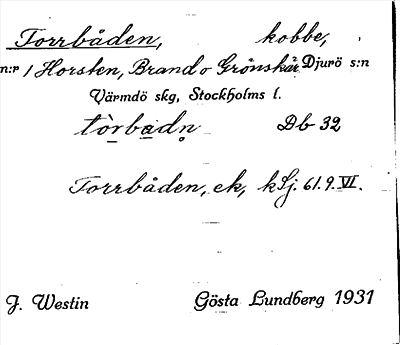 Torrbåden, kobbe,
n:r / Horsten, Brand o Grönskär Djurö s:n
Värmdö skg, Stockholms l.
tòrbadn̥ Db 32
Torrbåden, ek, kSj. 61.9.VI.
J. Westin Gösta Lundberg 1931